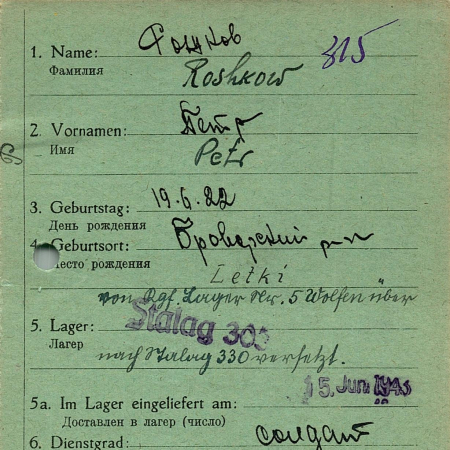 1. Name: Рошков 315
Фамилия Roshkow
2. Vornamen: Петр
Имя Petr
3. Geburtstag: 19.6.22
День рождения
4. Geburtsort: Броварский р-н
Место рождения Letki
von Kgf. Lager Nr. 5 Wolfen über
5. Lager: Stalag 303
Лагерь nach Stalag 330 versetzt.
15. Juni 1943
5a. Im Lager eingeliefert am:
Доставлен в лагерь (число)
6. Dienstgrad: солдат